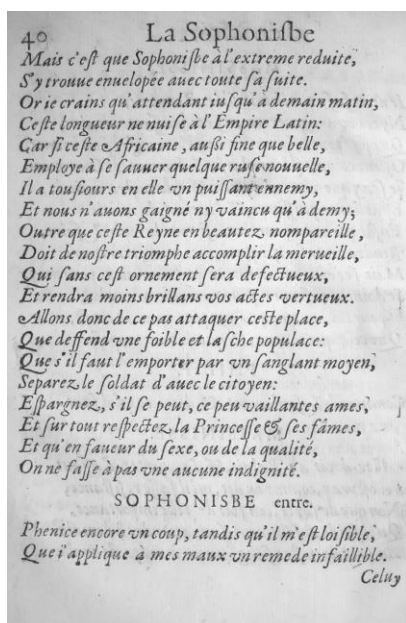 40 La Sophonisbe
Mais c'eſt que Sophoniſbe à l'extreme reduite,
S'y trouue enuelopée auec toute ſa ſuite.
Or ie crains qu'attendant iuſqu'à demain matin,
Ceſte longueur ne nuiſe à l'Empire Latin:
Car ſi ceſte Africaine, auſſi fine que belle,
Employe à ſe ſauuer quelque ruſe nouuelle,
Il a touſiours en elle vn puiſſant ennemy,
Et nous n'auons gaigné ny vaincu qu'à demy;
Outre que ceſte Reyne en beautez nompareille,
Doit de noſtre triomphe accomplir la merueille,
Qui ſans ceſt ornement ſera defectueux,
Et rendra moins brillans vos actes vertueux.
Allons donc de ce pas attaquer ceſte place,
Que deffend vne foible et laſche populace:
Que s'il faut l'emporter par vn ſanglant moyen,
Separez le ſoldat d'auec le citoyen:
Eſpargnez, s'il ſe peut, ce peu vaillantes ames,
Et ſur tout reſpectez la Princeſſe & ſes fâmes,
Et qu'en faueur du ſexe, ou de la qualité,
On ne faſſe à pas vne aucune indignité.
SOPHONISBE entre.
Phenice encore vn coup, tandis qu'il m'eſt loiſible,
Que i'applique à mes maux vn remede infaillible.
Celuy